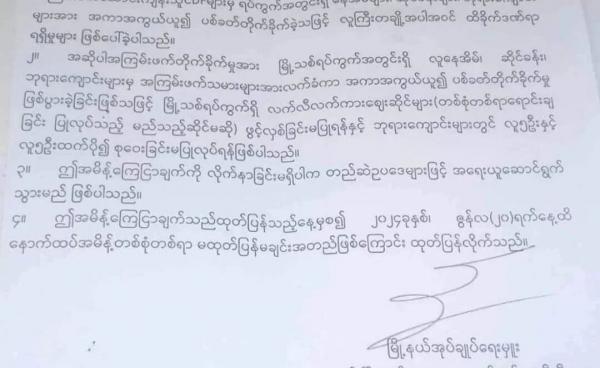 များအား အကာအကွယ်ယူ၍ ပစ်ခတ်တိုက်ခိုက်ခဲ့သဖြင့် လူကြီးတချို့အပါအဝင် ထိခိုက်ဒဏ်ရာ
ရရှိမှုများ ဖြစ်ပေါ်ခဲ့ပါသည်။
၂။ အဆိုပါအကြမ်းဖက်တိုက်ခိုက်မှုအား မြို့သစ်ရပ်ကွက်အတွင်းရှိ လူနေအိမ်၊ ဆိုင်ခန်း၊
ဘုရားကျောင်းများမှ အကြမ်းဖက်သမားများအားလက်ခံကာ အကာအကွယ်ယူ၍ ပစ်ခတ်တိုက်ခိုက်မှု
ဖြစ်ပွားခဲ့ခြင်းဖြစ်သဖြင့် မြို့သစ်ရပ်ကွက်ရှိ လက်လီလက်ကားစျေးဆိုင်များ(တစ်စုံတစ်ရာရောင်းချ
ခြင်း ပြုလုပ်သည့် မည်သည့်ဆိုင်မဆို) ဖွင့်လှစ်ခြင်းမပြုရန်နှင့် ဘုရားကျောင်းများတွင် လူ၅ဦးနှင့်
လူ၅ဦးထက်ပို၍ စုဝေးခြင်းမပြုလုပ်ရန်ဖြစ်ပါသည်။
၃။ ဤအမိန့်ကြေငြာချက်ကို လိုက်နာခြင်းမရှိပါက တည်ဆဲဥပဒေများဖြင့် အရေးယူဆောင်ရွက်
သွားမည် ဖြစ်ပါသည်။
၄။ ဤအမိန့်ကြေငြာချက်သည်ထုတ်ပြန်သည့်နေ့မှစ၍ ၂၀၂၄ခုနှစ်၊ ဇွန်လ(၂၀)ရက်နေ့ထိ
နောက်ထပ်အမိန့်တစ်စုံတစ်ရာ မထုတ်ပြန်မချင်းအတည်ဖြစ်ကြောင်း ထုတ်ပြန်လိုက်သည်။
မြို့နယ်အုပ်ချုပ်ရေးမှူး